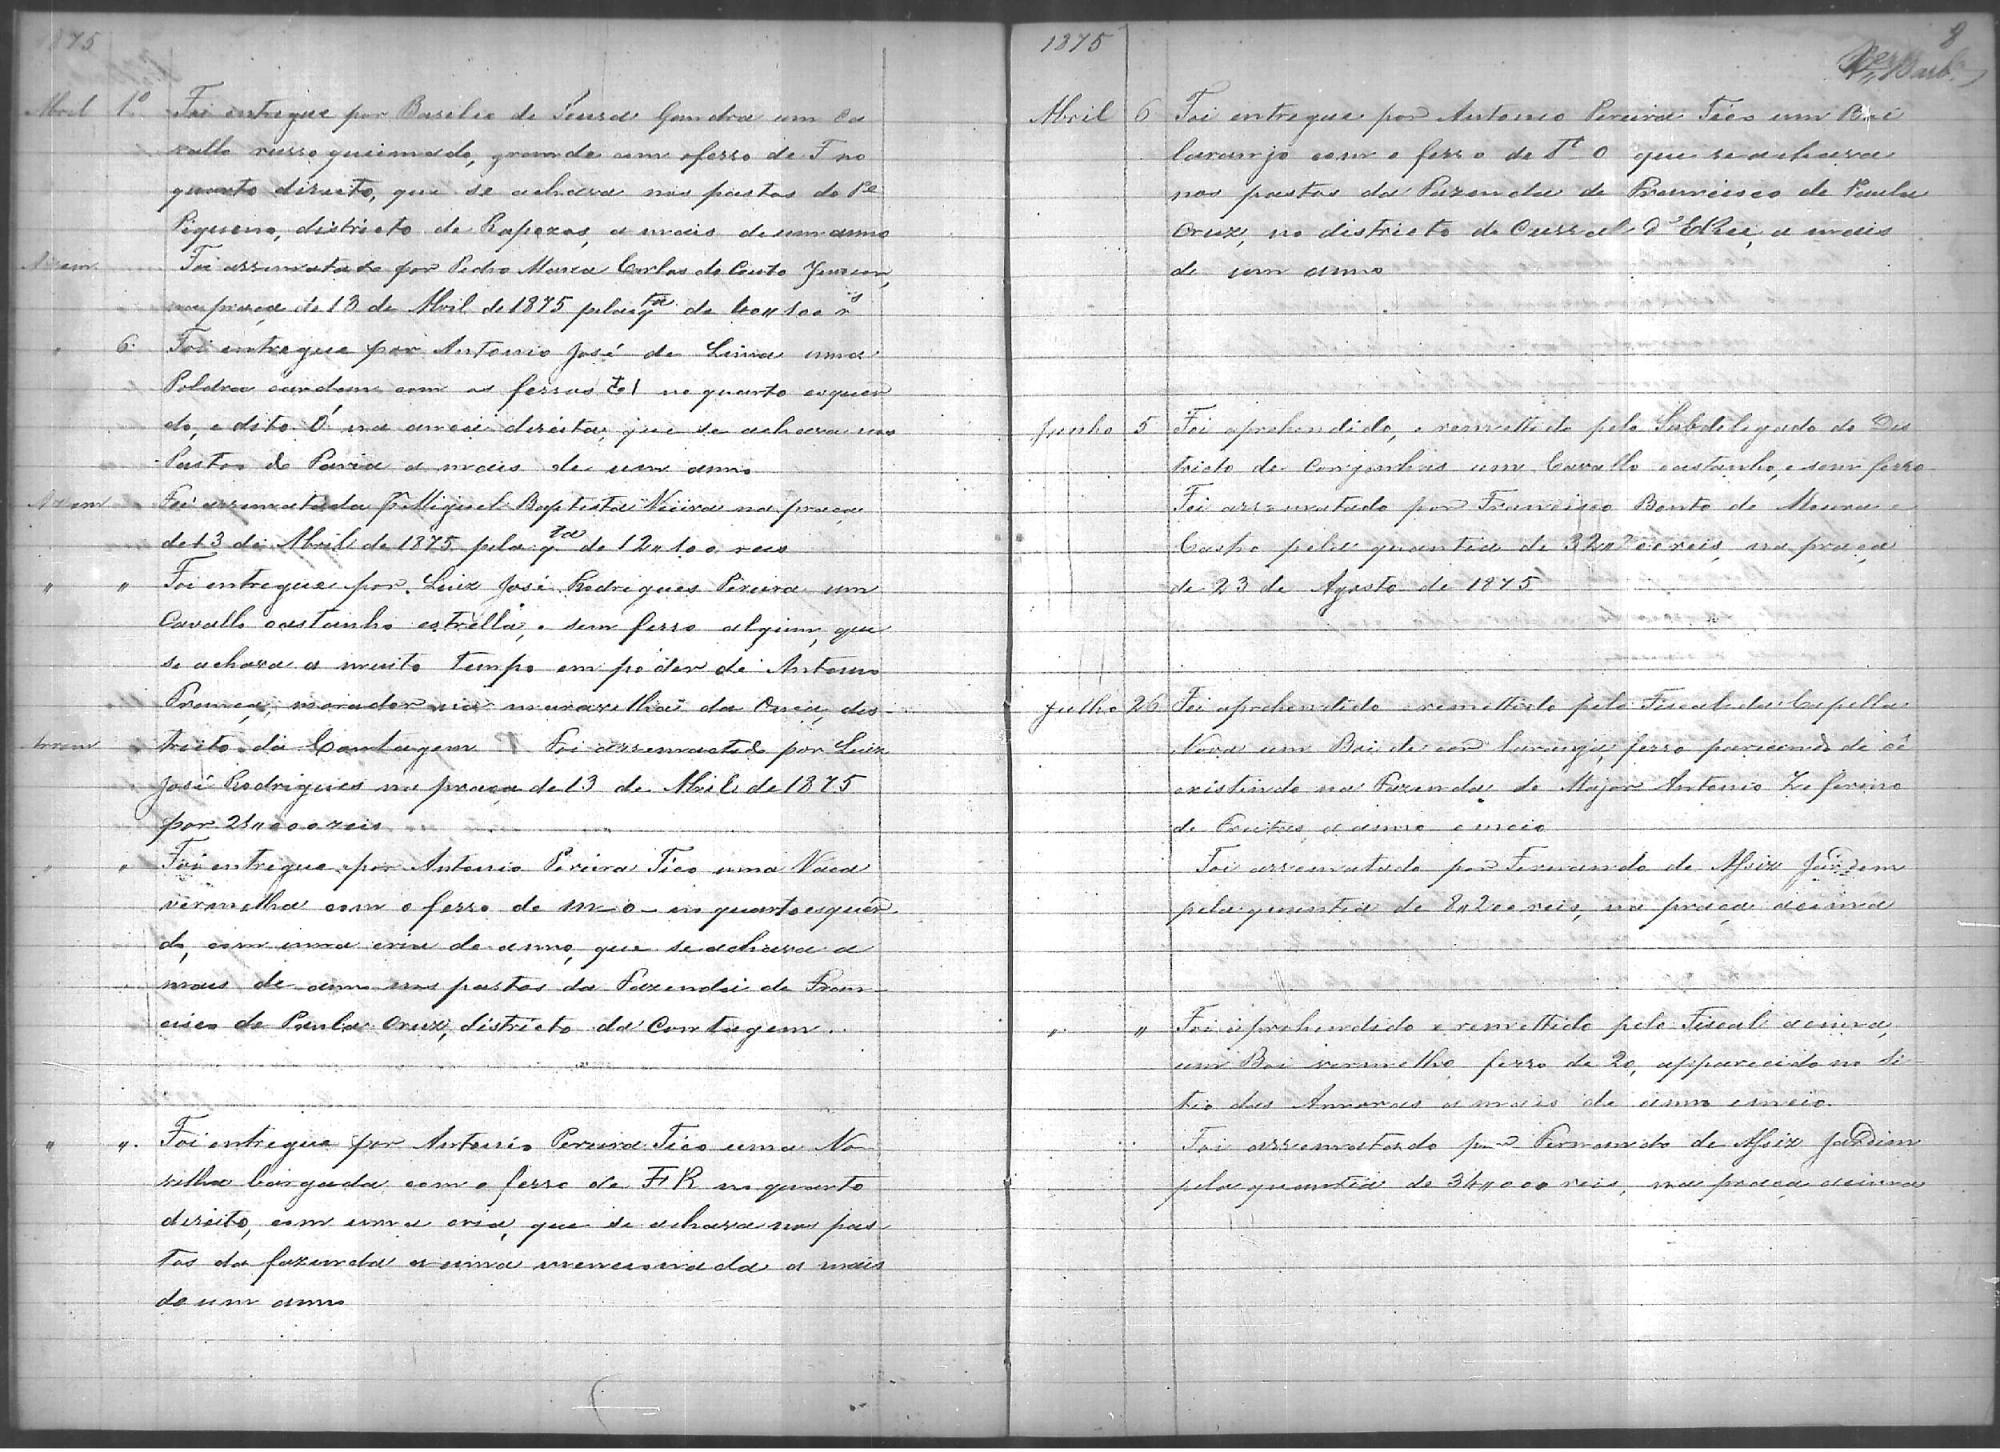 1875
Abril 1º Foi entregue por Basilio de Souza Gandra um Ca
vallo russo queimado, grande com o ferro de F no
quarto direito, que se achava nos pastos do Pe
Piqueno, districto de Rapozos, a mais de um anno
Foi arrematado por Pedro Maria Carlos do Couto Junior,
na praça de 13 de Abril de 1875 pela qta de 40"100 rs
" 6 Foi entregue por Antonio José de Lima uma
Poldra cardan com os ferros no quarto esquer
do, e dito O na anca direita, que se achava nos
Pastos de Paria a mais de um anno
Foi arrematada Miguel Baptista Vieira na praça
de 13 de Abril de 1875 pela qta de 12"100 reis
" " Foi entregue por Luiz José Rodrigues Pereira um
Cavallo castanho estrella, e sem ferro algum, que
se achava a muito tempo em poder de Antonio
França, morador na maravelha da Onça, dis-
tricto da Contagem Foi arrematado por Luiz
José Rodrigues na praça de 13 de Abril de 1875
por 000 reis
" " Foi entregue por Antonio Pereira Tico uma Vaca
vermelha com o ferro de m-o- no quarto esquer
do, com uma cria de anno, que se achava a
mais de anno nos pastos da Fazenda de Fran-
cisco de Paula Cruz, districto da Contagem.
" ". Foi entregue por Antonio Pereira Tico uma No
vilha bargada com o ferro de FR no quarto
direito, com uma cria, que se achava nos pas
tos da fazenda acima mencionada a mais
de um anno
1875
8
Abril 6 Foi entregue por Antonio Pereira Tico um Boi
laranjo com o ferro de O que se achava
nos pastos da Fazenda de Francisco de Paula
Cruz, no districto do Curral d'ElRei, a mais
de um anno
Junho 5 Foi aprehendido, e remettido pelo Subdelegado do Dis
tricto de Congonhas um Cavallo castanho, e sem ferro
Foi arrematado por Francisco Bento de Moura e
Castro pela quantia de 32"200 reis, na praça
de 23 de Agosto de 1875
Julho 26 Foi aprehendido e remettido pelo Fiscal da Capella
Nova um Boi de cor laranja, ferro parecendo de cê
existindo na Fazenda do Major Antonio Zeferino
de Freitas, a anno e meio
Foi arrematado por Fernando de Assiz Jardim
pela quantia de 8"200 reis, na praça acima
" " Foi aprehendido e remettido pelo Fiscal acima,
um Boi vermelho ferro de 20, apparecido no Si-
tio das Amoras a mais de anno e meio.
Foi arrematado por Fernando de Assiz Jardim
pela quantia de 34"000 reis, na praça acima